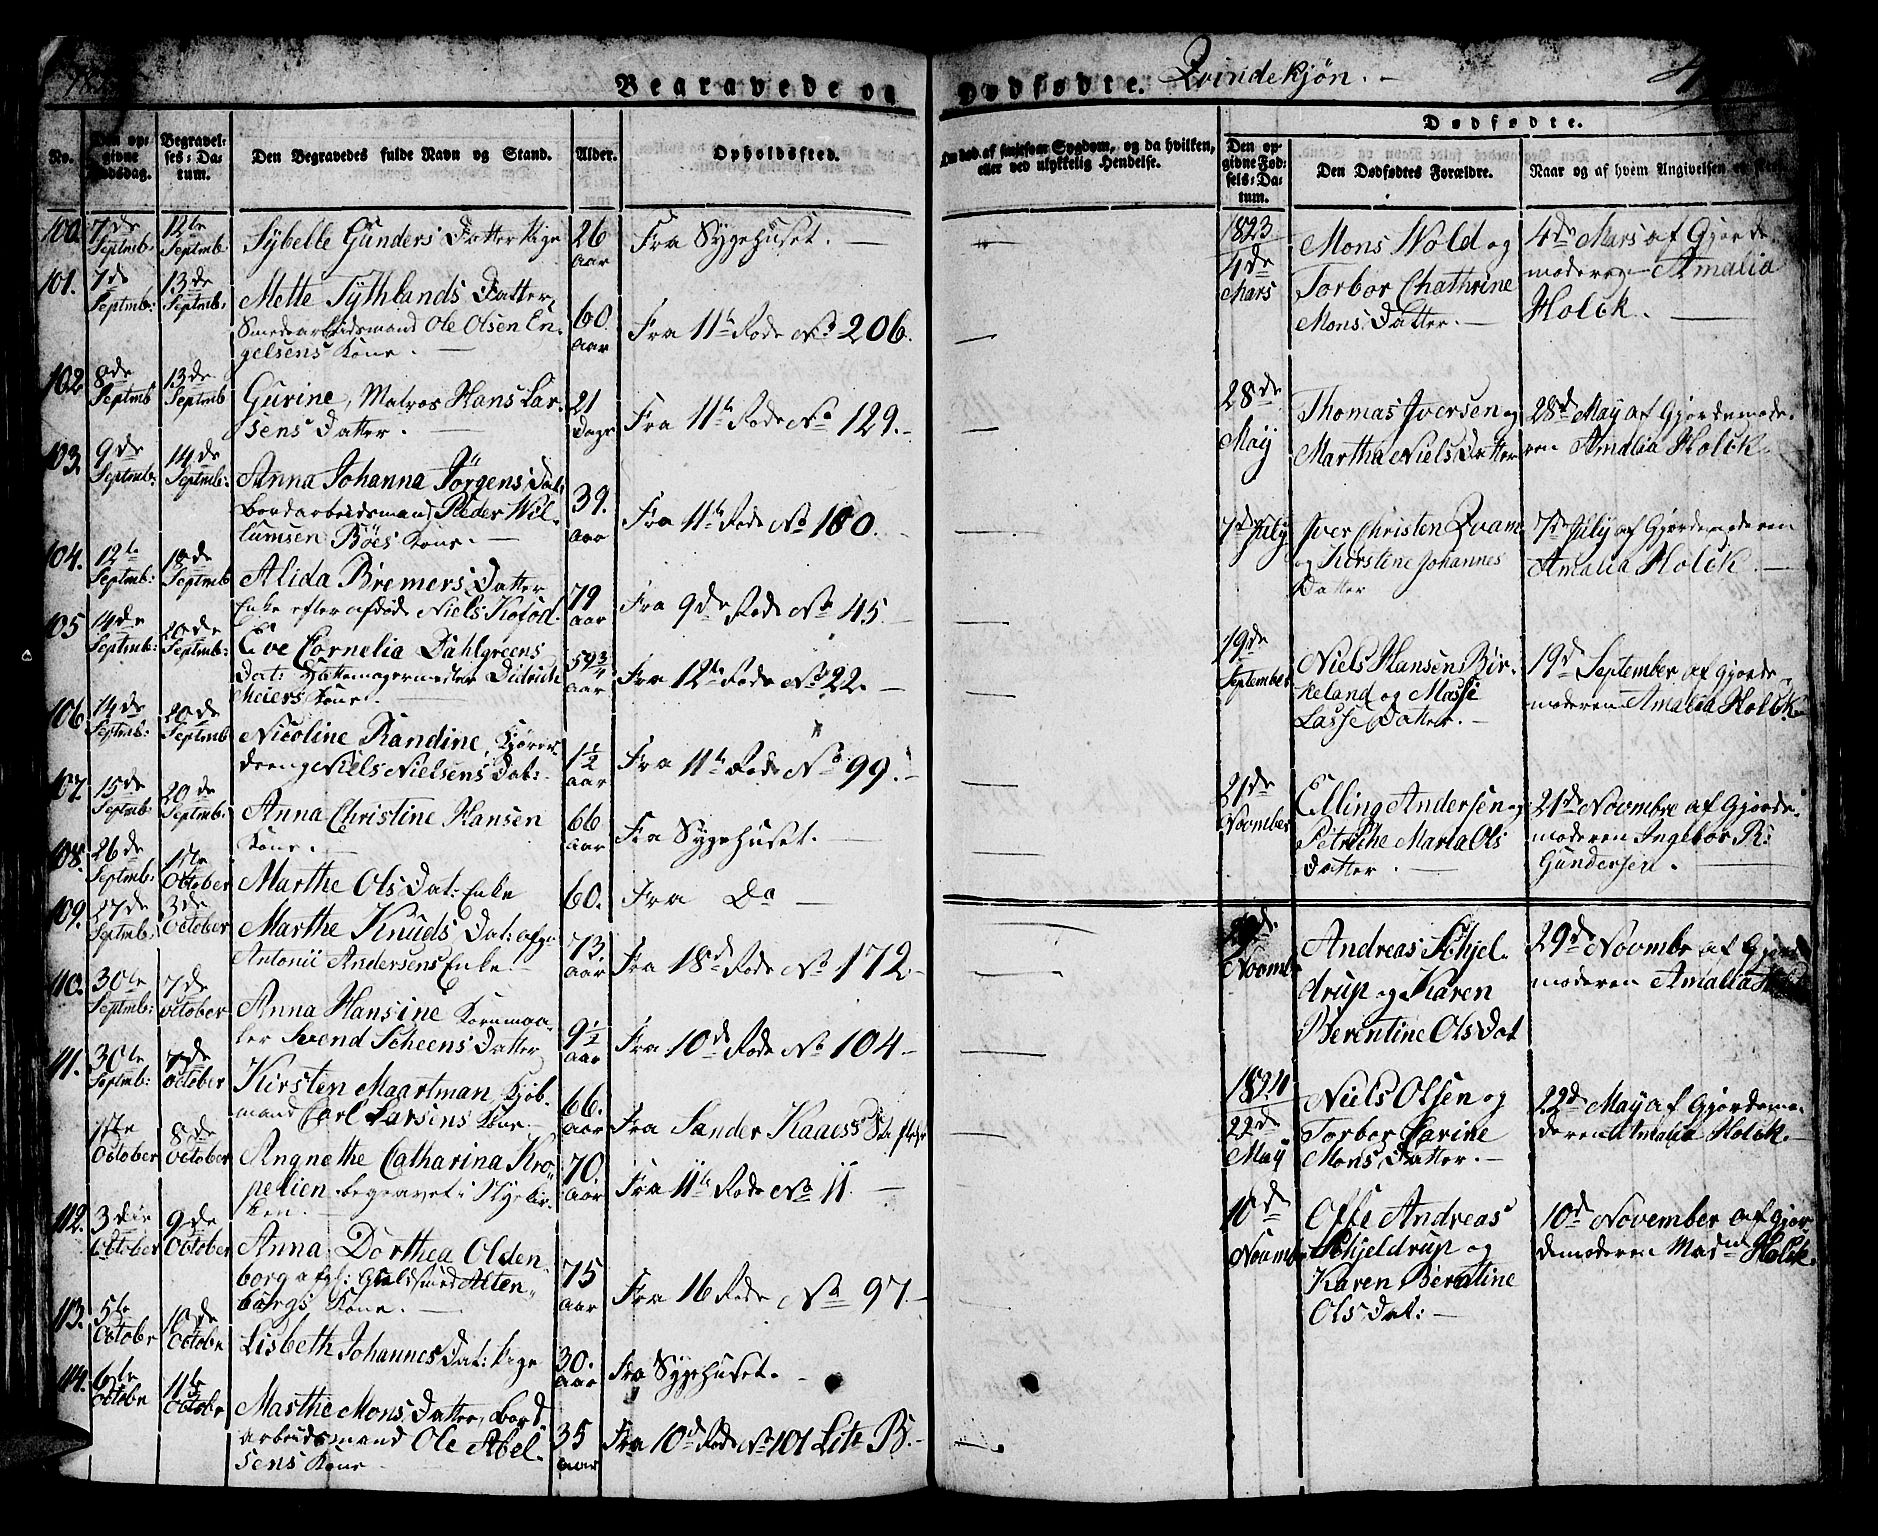 Begravede og Dødfødte. Qvindekjøn. -
No.
Den op-
givne
Dødsdag.
Begravel-
ses-Da-
tum.
Den Begravedes fulde Navn og Stand.
Alder.
Opholdssted.
eller ved ulykkelig Hendelse.
Dødfødte.
Den op-
givne Fød-
sels-Da-
tum.
Den Dødfødtes Forældre.
Naar og af hvem Angivelsen er skeet
100. 7de Septmb: 12te Septmb: Sybelle Gunders Datter Pige 26 aar Fra Sygehuset. —
101. 7de Septmb: 13de Septmb: Mette Tythlands Datter,
Smedearbeidsmand Ole Olsen En-
gelsens Kone. — 60. aar Fra 11te Rode No 206.
102. 8de Septmb 13de Septmb Gurine, Matros Hans Lar-
sens Datter. 21 Dage Fra 11te Rode No 129. -
103. 9de Septmb: 14de Septmb: Anna Johanna Jörgens Dat:
Bordarbeidsmand Peder Wil-
lumsen Böes Kone. — 39. aar Fra 11te Rode No 180.
104. 12te Septmb: 18de Septmb Alida Bremers Datter
Enke efter afdøde Niels Kofod. 79 aar Fra 9de Rode No 45.
105 14de Septmb: 20de Septmb: Eve Cornelia Dahlgreens
Dat: Hattemagermester Didrich
Meiers Kone. 59 3/4 aar Fra 12te Rode No 22. -
106. 14de Septmb: 20de Septmb Nicoline Randine, Kjörer-
dreng Niels Nielsens Dat: 1 1/2 aar Fra 11te Rode No 99. -
107. 15de Septmb: 20de Septmb: Anna Christine Hansen
Kone. 66 aar Fra Sygehuset. —
108. 26de Septmb: 1ste October Marthe Ols Dat: Enke 60. Fra Do —
109. 27de Septmb: 3de October Marthe Knuds Dat: afg:
Antonii Andersens Enke. 73. aar Fra 18de Rode No 172. -
110. 30te Septmb: 7de October Anna Hansine Kornmaa-
ler Svend Scheens Datter 9 1/2 aar Fra 10de Rode No 104 -
111. 30te Septmb: 7de October Kirsten Maartman, Kjöb-
mand Carl Larsens Kone. 66. aar Fra Sander Kaaes
1ste October 8de October Angnethe Catharina Krö-
pelien begravet i Nykir-
ken. 70. aar Fra 11te Rode No 11. —
112. 3die October 9de October Anna Dorthea Olden-
borg afgl: Guldsmed Alten-
borgs Kone. 75 aar Fra 16 Rode No 97. -
113. 5te Octobr 10de Octobr Lisbeth Johannes Dat: Pige 30. aar Fra Sygehuset.
114. 6te Octobr 11te Octobr Marthe Mons Datter, Bord-
arbeidsmand Ole Abel-
sens Kone 35 aar Fra 10de Rode No 101 Litr B. -
1823
4de Mars Mons Wold og
Torbor Chathrine
Mons Datter. — 4de Mars af Gjorde-
moderen Amalia
Holck. —
28de May Thomas Iversen og
Martha Niels Datter 28de May af Gjordemode-
ren Amalia Holck.
7de July Iver Christen Qvam
og Kirstine Johannes
Datter 7de July af Gjordemoderen
Amalia Holck. —
19de September Niels Hansen Bir-
keland og Masse
Lasse Datter. — 19de September af Gjorde-
moderen Amalia Holck.
21de Novmber Elling Andersen og
Petriche Maria Ols
Datter. — 21de Novmbre af Gjorde-
moderen Ingebor R:
Gundersen. —
29de Novmbr Andreas Schjel-
drup og Karen
Berentine Ols Dat 29de Novmbr af Gjord-
moderen Amalia Holck
1824
22de May Niels Olsen og
Torbor Carine
Mons Datter. — 22de May af Gjordemo-
deren Amalia Holck. —
10de Novmbr Offe Andreas
Schjeldrup og
Karen Berntine
Ols Dat: — 10de November af Gjor-
demoderen Madm Holck.